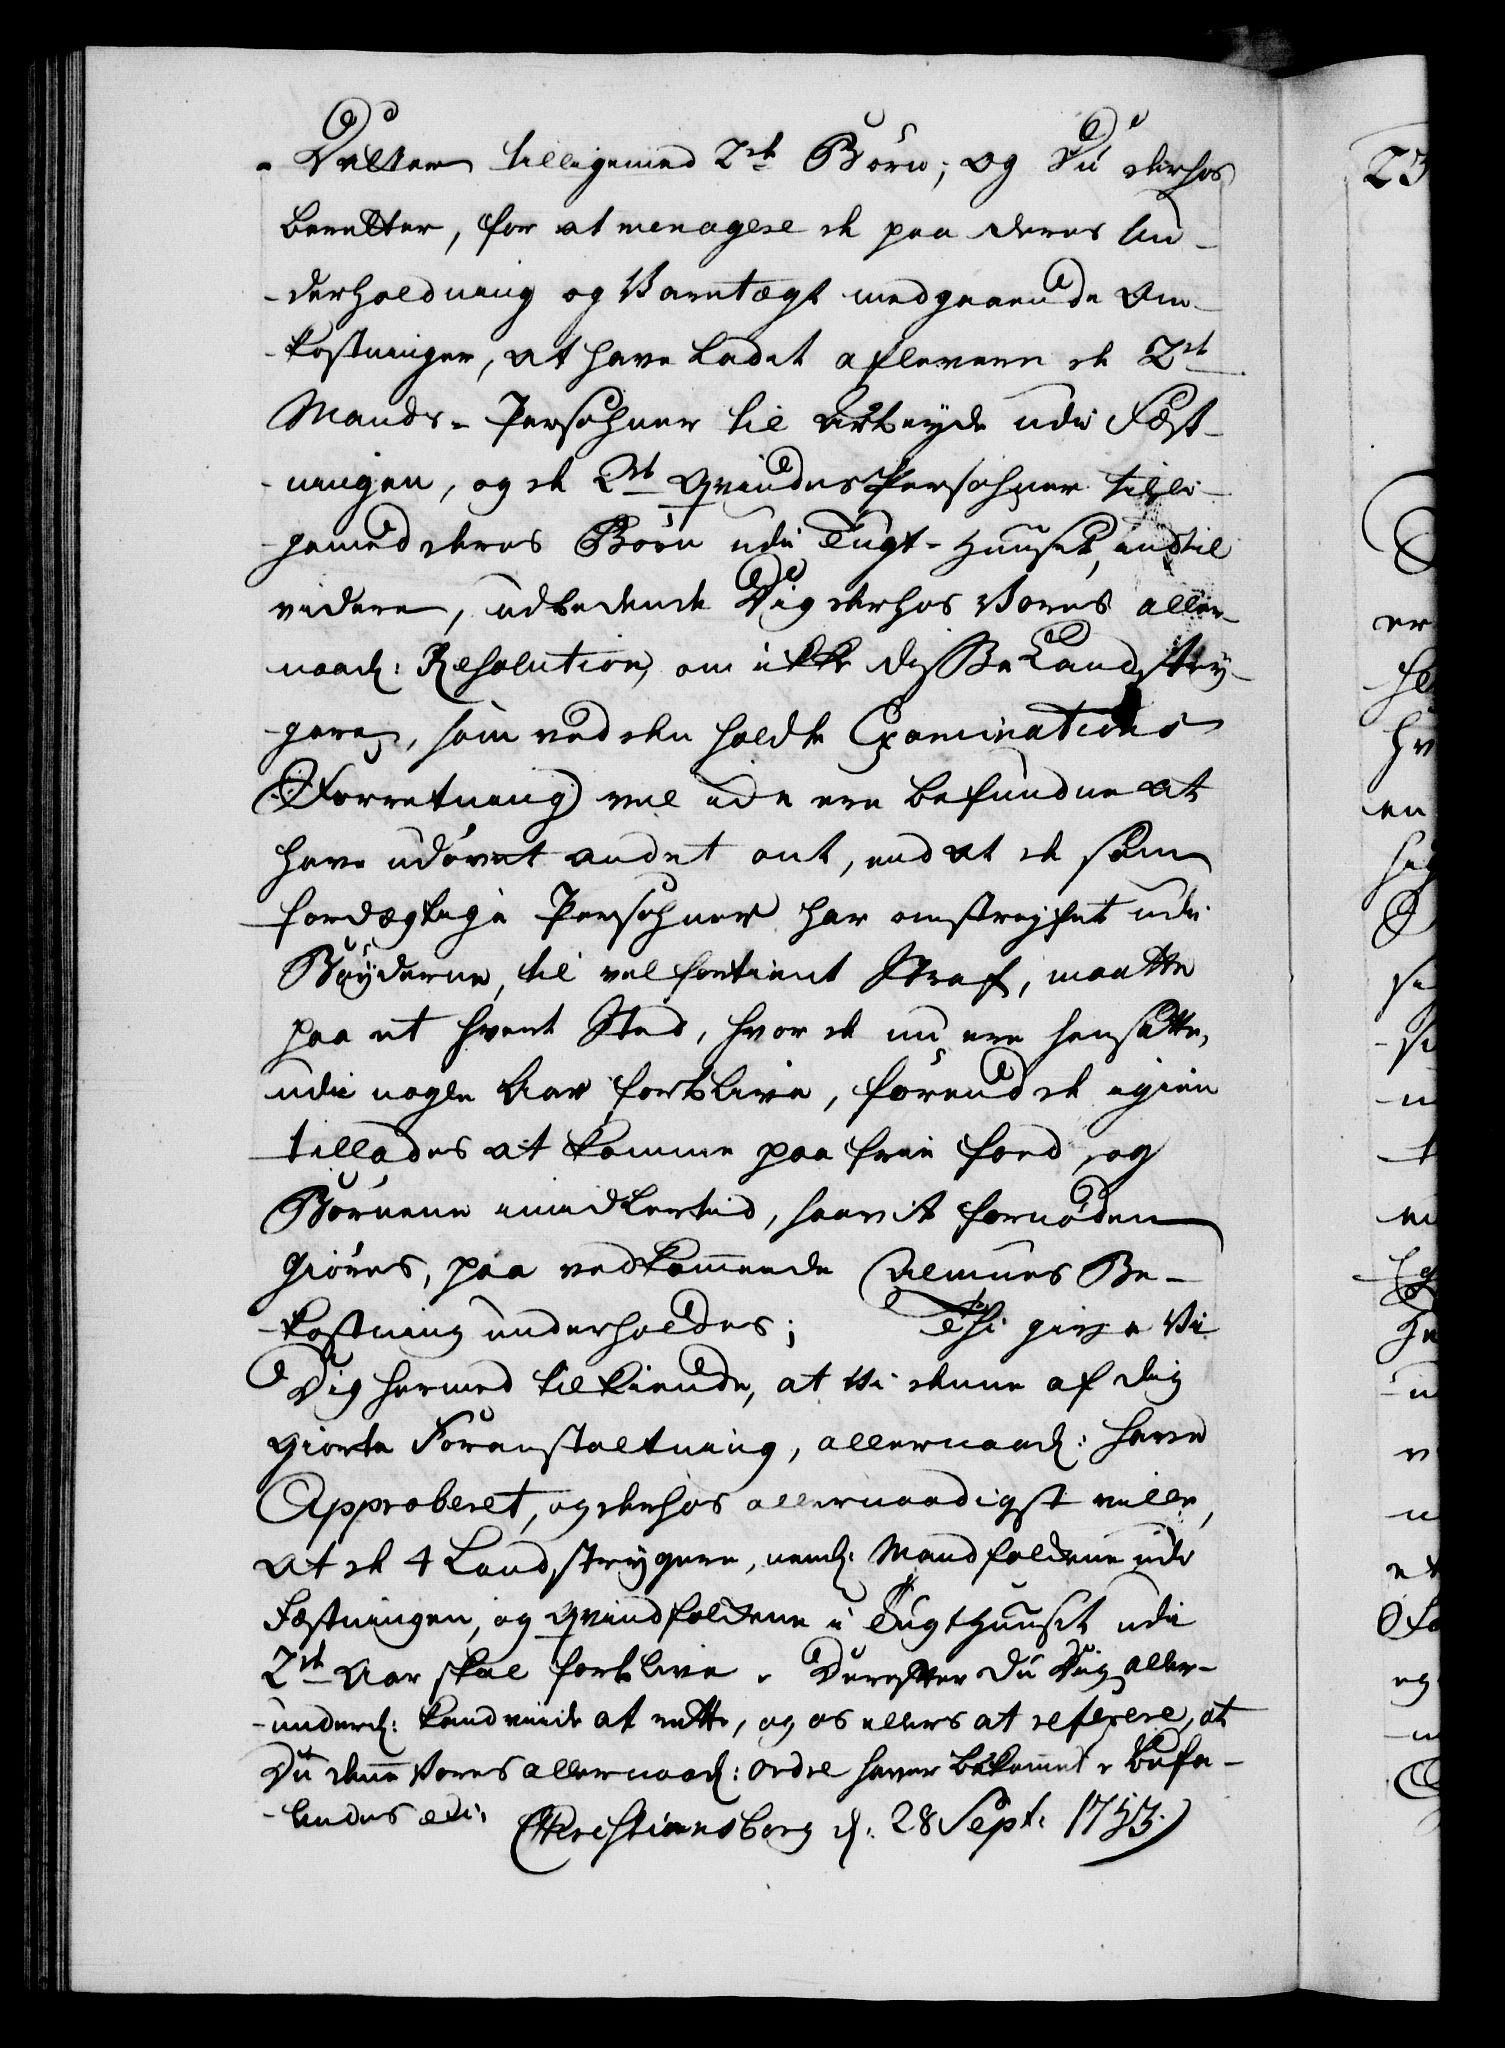 Datter tilligemed 2de Börn; og Du derhos
beretter, for at menagere de paa deres Un-
-derholdning og Varetægt medgaaende Om-
-kostninger, at have ladet aflevere de 2de
Mands-Persohner til Arbeyde udi Fæst-
-ningen, og de 2de Qvindes Persohner tilli-
-gemed deres Börn udi Tugt-Huuset, indtil
videre, udbedende Dig derhos Vores aller-
naad: Resolution, om ikke disse Landstry-
-gere, som ved den holdte Examinations
Forretning vel ide ere befundne at
have udövet andet ont, end at de som
fordægtige Persohner har omstreyfet udi
Böyderne, til velfortient Straf, maatte
paa et hvert Sted, hvor de nu ere hensatte,
udi nogle Aar forblive, förend de igien
tillades at komme paa frie Foed, og
Börnene imidlertid, saavit fornöden
giöres, paa vedkommende Almues Be-
-kostning underholdes; Thi give Vi
Dig hermed tilkiende, at Vi denne af dig
giorte Foranstaltning, allernaad: have
Approberet, og derhos allernaadigst ville,
at de 4 Landstrygere, neml: Mandfolkene udi
Fæstningen, og Qvindfolkene i Tugthuuset udi
2de Aar skal forblive. Derefter du Dig aller-
-underd: kand viide at rette, og os ellers at referere, at
Du denne Vores allernaad: Ordre haver bekommet. Befa-
-lendes etc: Christiansborg d: 28 Sept: 1753.